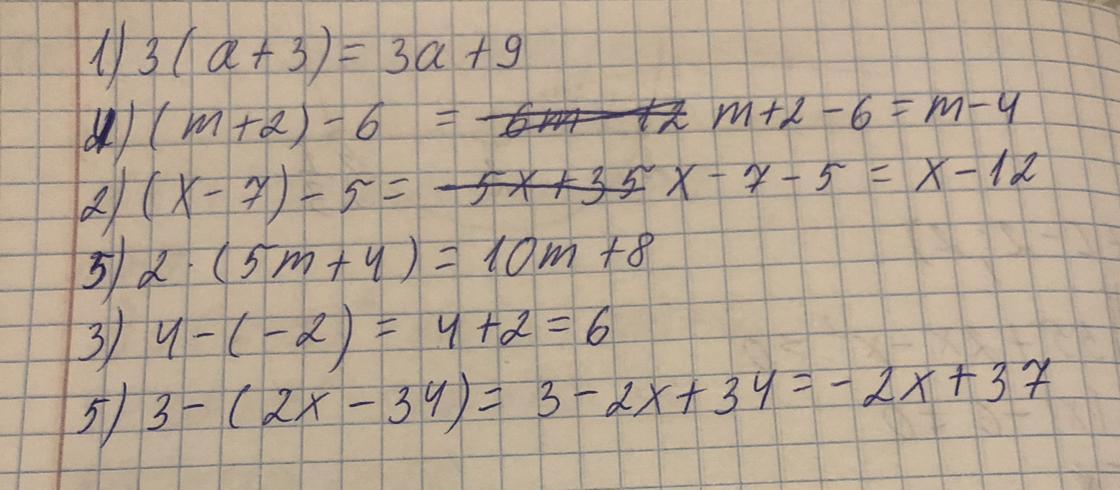 1) 3(a+3)= 3a+9
4) (m+2)-6 = 6m+2 m+2-6=m-4
2) (x-7)-5= -5x+35 x-7-5 = x-12
5) 2·(5m+4)= 10m+8
3) 4-(-2)= 4+2=6
5) 3-(2x-34)= 3-2x+34=-2x+37